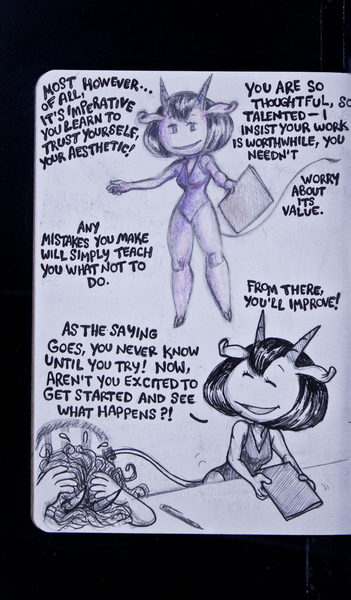 MOST HOWEVER...
OF ALL,
IT'S IMPERATIVE
YOU LEARN TO
TRUST YOURSELF,
YOUR AESTHETIC!
YOU ARE SO
THOUGHTFUL, SO
TALENTED – I
INSIST YOUR WORK
IS WORTHWHILE, YOU
NEEDN'T
WORRY
ABOUT
ITS
VALUE.
ANY
MISTAKES YOU MAKE
WILL SIMPLY TEACH
YOU WHAT NOT TO
DO.
FROM THERE,
YOU'LL IMPROVE!
AS THE SAYING
GOES, YOU NEVER KNOW
UNTIL YOU TRY! NOW,
AREN'T YOU EXCITED TO
GET STARTED AND SEE
WHAT HAPPENS?!